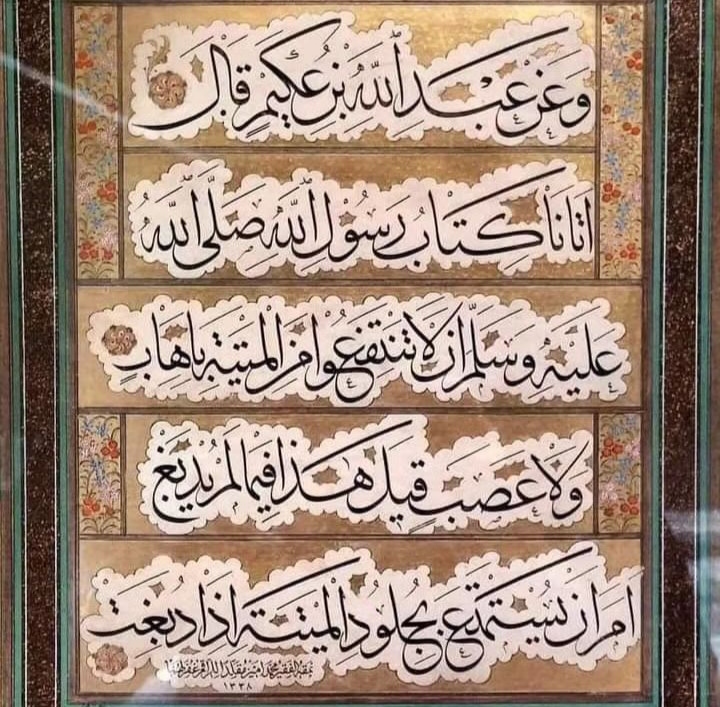 وَعَنْ عَبْدِ اللهِ بْنِ عُكَيْمٍ قَالَ
اَتَانَا كِتَابُ رَسُولِ اللهِ صَلَّى اللهُ
عَلَيْهِ وَسَلَّمَ اَنْ لَا تَنْتَفِعُوا مِنَ الْمَيْتَةِ بِاِهَابٍ
وَلَا عَصَبٍ قِيلَ هٰذَا فِيمَا لَمْ يُدْبَغْ
اَمَرَ اَنْ يُسْتَمْتَعَ بِجُلُودِ الْمَيْتَةِ اِذَا دُبِغَتْ
١٣٣٨